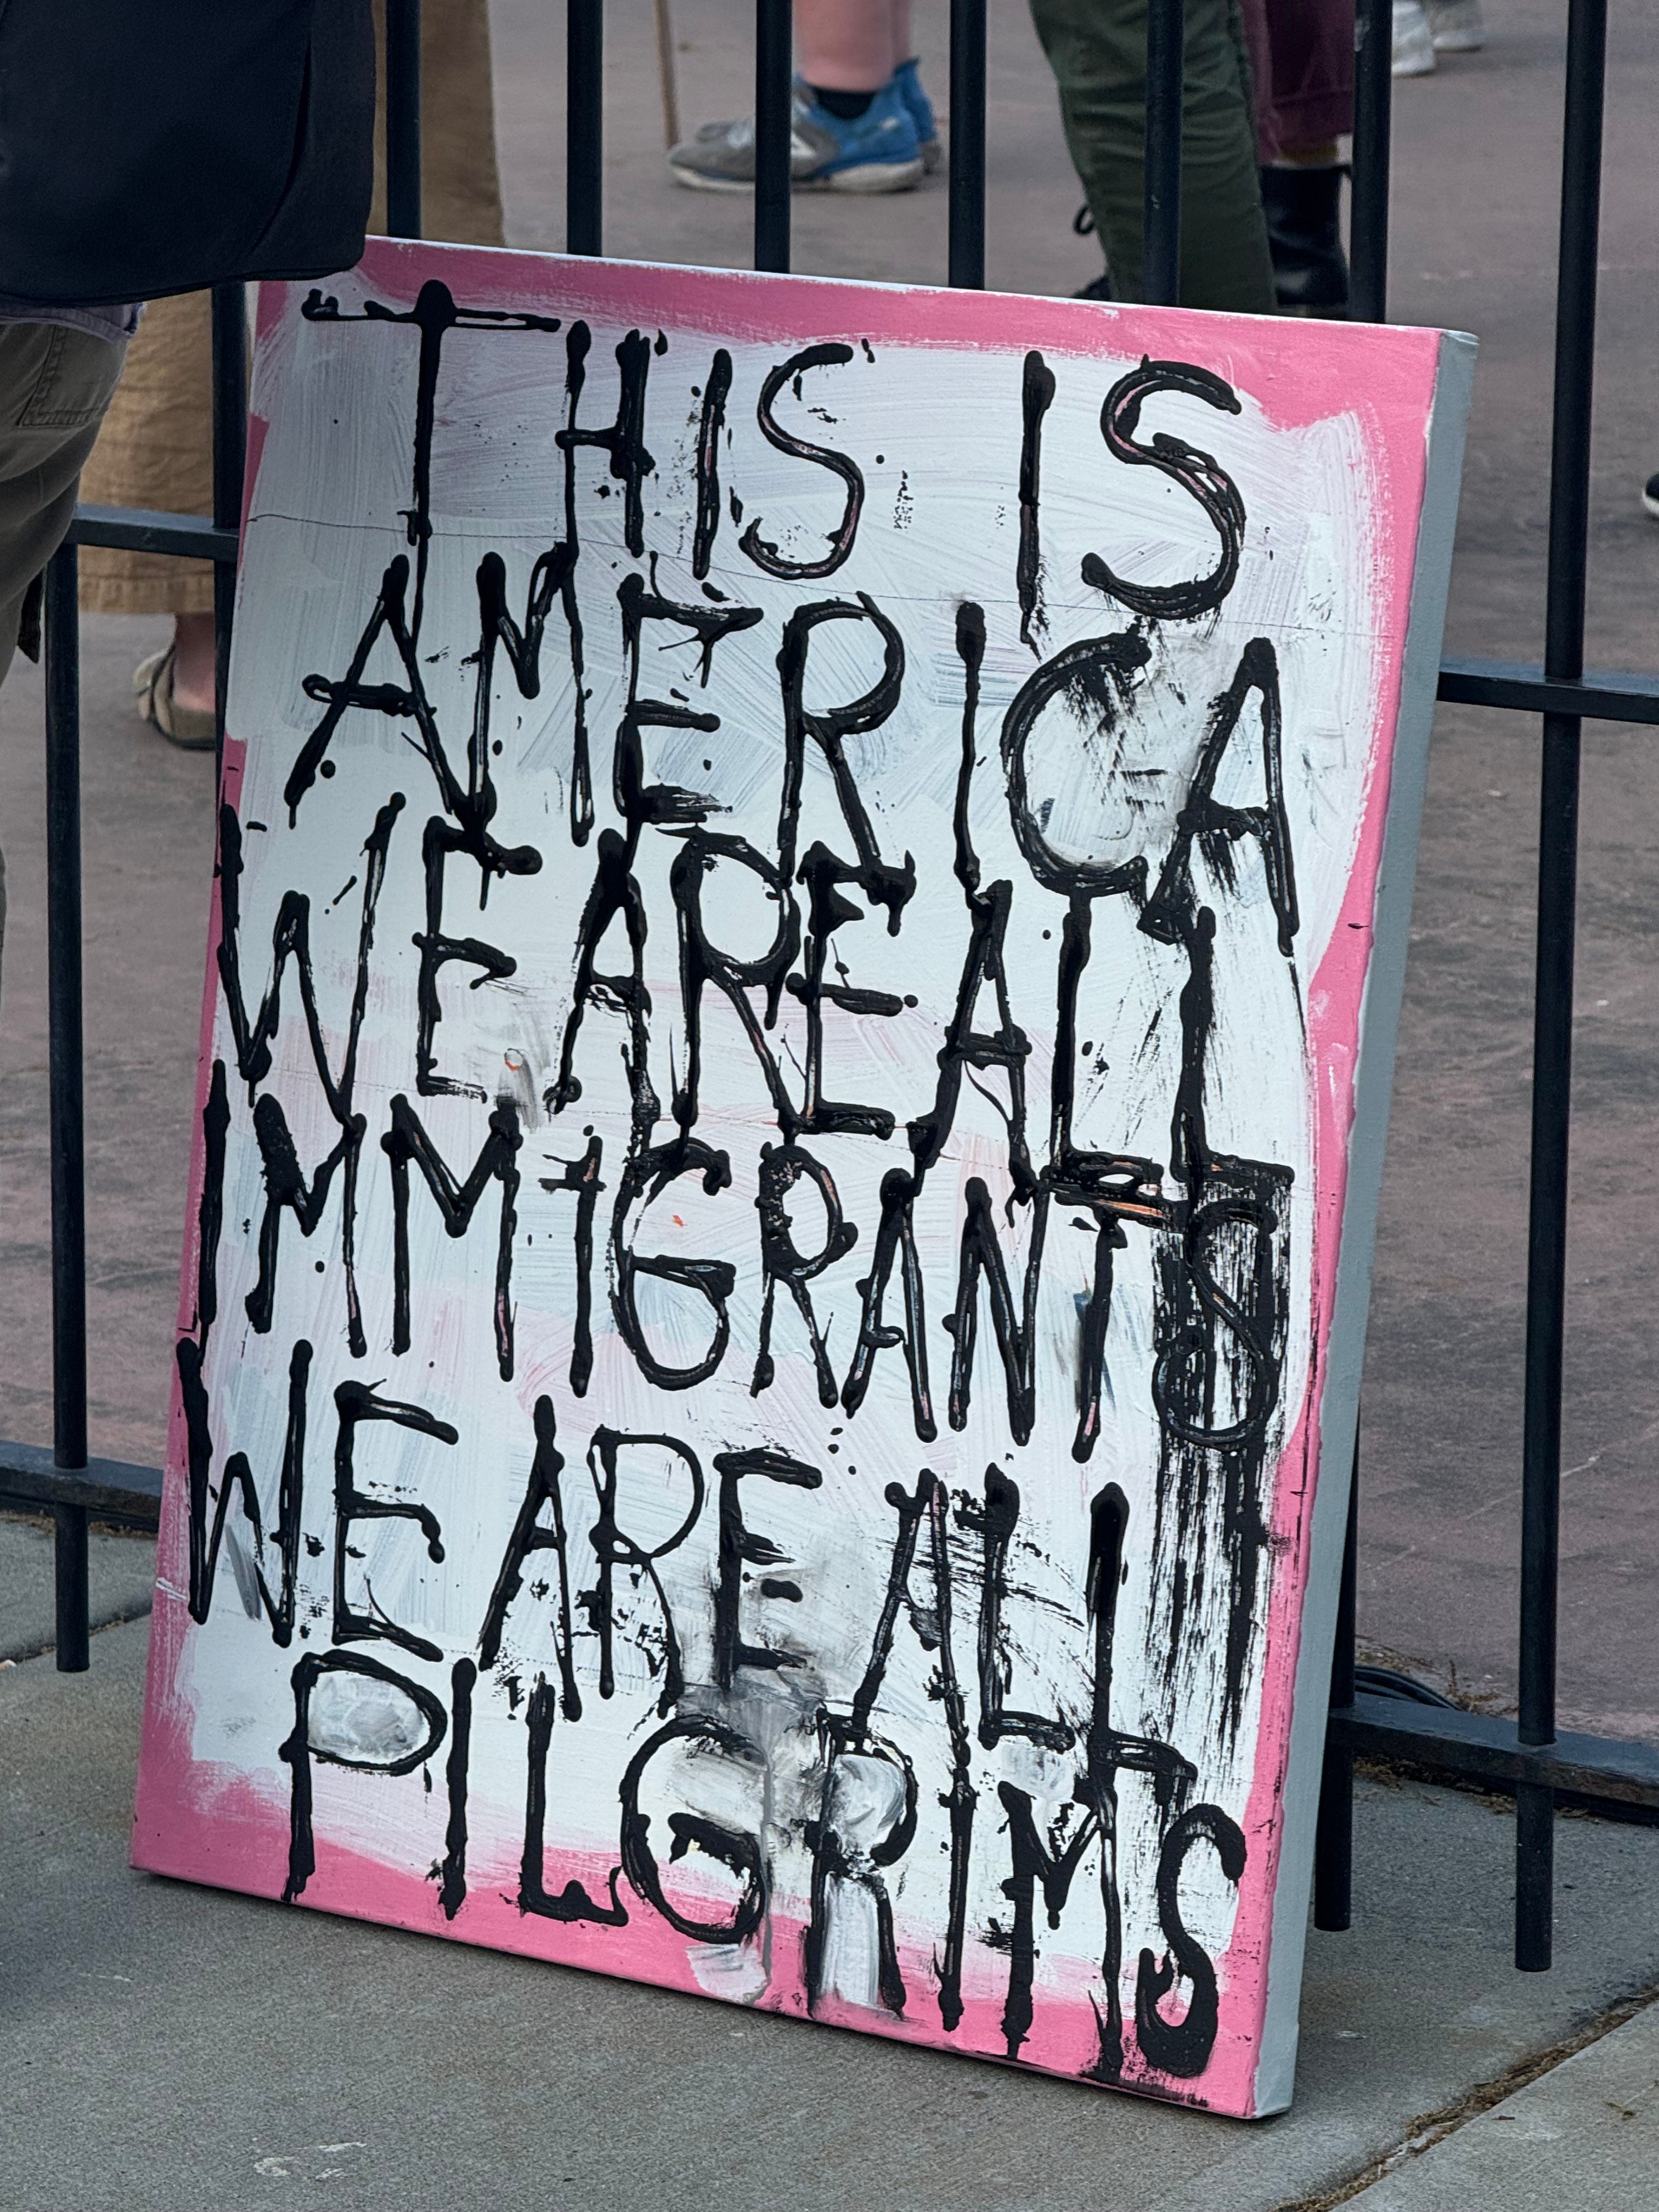 THIS IS
AMERICA
WE ARE ALL
IMMIGRANTS
WE ARE ALL
PILGRIMS